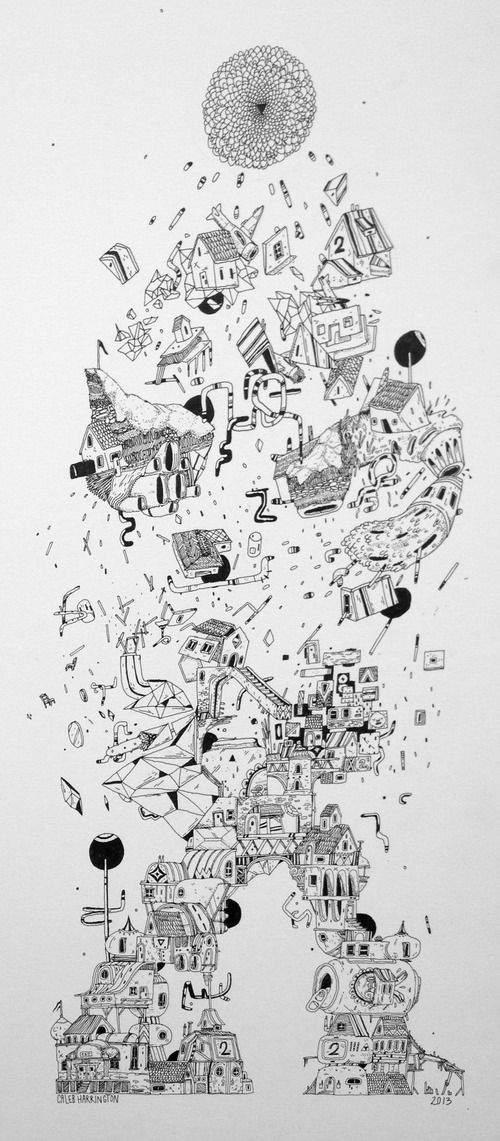 2
2
2
CALEB HARRINGTON
2013